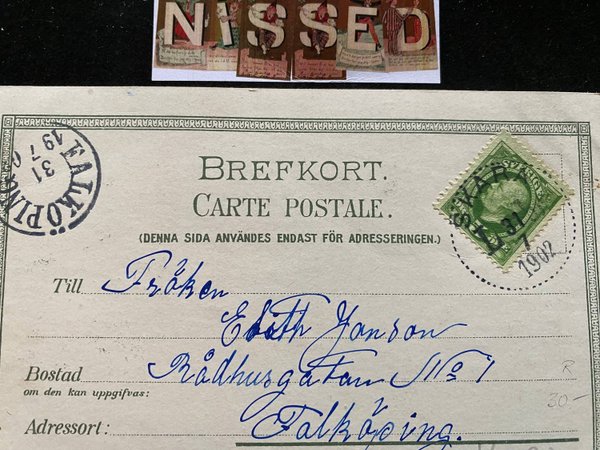 NISSED
BREFKORT.
CARTE POSTALE.
(DENNA SIDA ANVÄNDES ENDAST FÖR ADRESSERINGEN.)
FALKÖPING
31
7
SKARA
31
7
1902
Till Fröken
Edith Janson
Bostad Rådhusgatan No 1
om den kan uppgifvas:
R
30-
Adressort: Falköping.